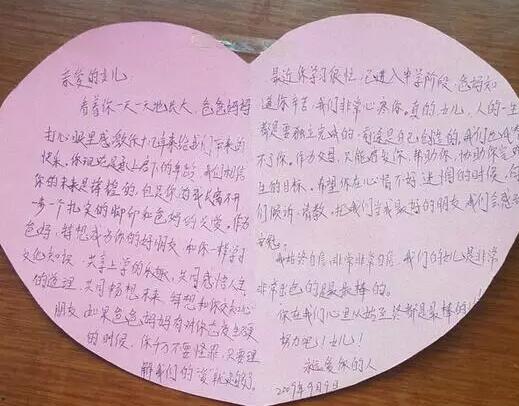 亲爱的女儿
看着你一天一天地长大，爸爸妈妈
打心眼里感激你十几年来给我们带来的
快乐。你现在是承上启下的年龄，我们相信
你的未来是辉煌的，但是你的成长离不开
一步一个扎实的脚印和爸妈的关爱。作为
爸妈，特想成为你的好朋友，和你一样学习
文化知识，共享上学的乐趣，共同感悟人生
的道理，共同畅想未来，特想和你交知心
朋友，如果爸爸妈妈有对你态度生硬
的时候，你千万不要怪罪，只要理
解我们的“爱”就足够了。
最近你学习很忙，已进入中学阶段，爸妈知
道你辛苦，我们非常心疼你。真的，女儿，人的一生
都是要独立完成的，前途是自己创造的，我们也代替
不了你。作为父母，只能培养你，帮助你，协助你完成
生的目标，希望你在心情不好，迷惘的时候，向
们倾诉、请教，把我们当成最好的朋友，我们会感到
安慰。
我始终自信，非常非常自信，我们的女儿是非常
非常出色的，是最棒的。
你在我们心里从始至终都是最棒的！
努力吧！女儿！
永远爱你的人
2009年9月9日